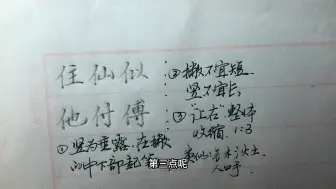 住仙似
他付傅
①竖为垂露,在撇
的中下部起笔
②撇不宜短
竖不宜长
③"让右"整体
收缩 1:3
第三点呢